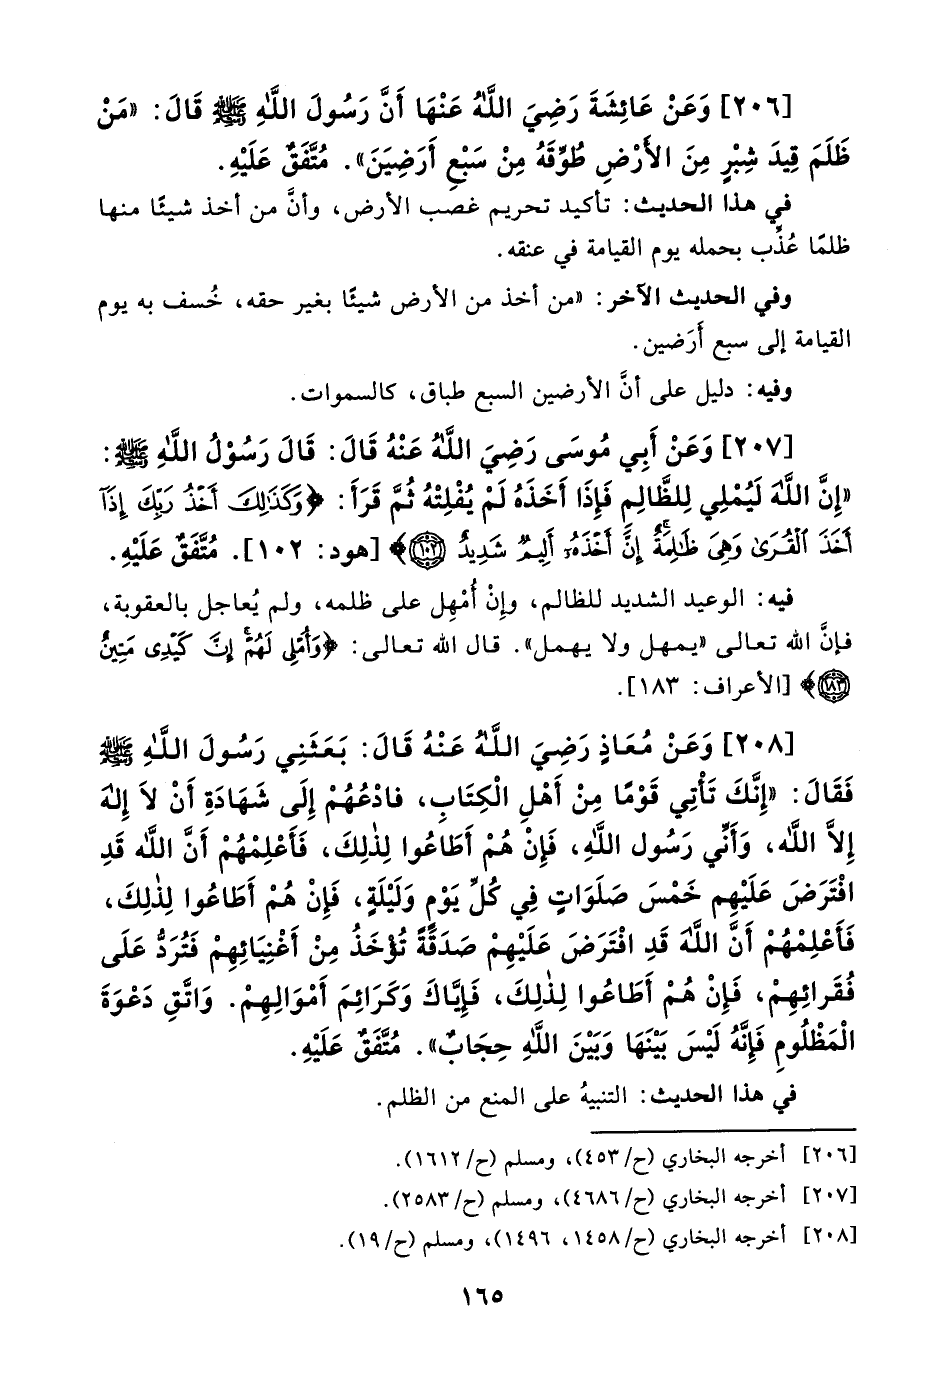 [٢٠٦] وَعَنْ عَائِشَةَ رَضِيَ اللَّهُ عَنْهَا أَنَّ رَسُولَ اللَّهِ ﷺ قَالَ: «مَنْ
ظَلَمَ قِيدَ شِبْرٍ مِنَ الأَرْضِ طُوِّقَهُ مِنْ سَبْعِ أَرَضِيَنَ». مُتَّفَقٌ عَلَيْهِ.
في هذا الحديث: تأكيد تحريم غصب الأرض، وأنَّ من أخذ شيئًا منها
ظلمًا عُذِّب بحمله يوم القيامة في عنقه.
وفي الحديث الآخر: «من أخذ من الأرض شيئًا بغير حقه، خُسف به يوم
القيامة إلى سبع أَرَضين.
وفيه: دليل على أنَّ الأرضين السبع طباق، كالسموات.
[٢٠٧] وَعَنْ أَبِي مُوسَى رَضِيَ اللَّهُ عَنْهُ قَالَ: قَالَ رَسُوْلُ اللَّهِ ﷺ:
«إِنَّ اللَّهَ لَيُمْلِي لِلظَّالِمِ فَإِذَا أَخَذَهُ لَمْ يُفْلِتْهُ ثُمَّ قَرَأَ: ﴿وَكَذَٰلِكَ أَخْذُ رَبِّكَ إِذَآ
أَخَذَ ٱلْقُرَىٰ وَهِىَ ظَٰلِمَةٌ ۚ إِنَّ أَخْذَهُۥٓ أَلِيمٌ شَدِيدٌ ١٠٢﴾ [هود: ١٠٢]. مُتَّفَقٌ عَلَيْهِ.
فيه: الوعيد الشديد للظالم، وإنْ أُمْهِل على ظلمه، ولم يُعاجل بالعقوبة،
فإنَّ الله تعالى «يمهل ولا يهمل». قال الله تعالى: ﴿وَأُمْلِى لَهُمْ ۚ إِنَّ كَيْدِى مَتِينٌ
١٨٣﴾ [الأعراف: ١٨٣].
[٢٠٨] وَعَنْ مُعَاذٍ رَضِيَ اللَّهُ عَنْهُ قَالَ: بَعَثَنِي رَسُولَ اللَّهِ ﷺ
فَقَالَ: «إِنَّكَ تَأْتِي قَوْمًا مِنْ أَهْلِ الْكِتَابِ، فادْعُهُمْ إِلَى شَهَادَةِ أَنْ لاَ إِلهَ
إِلاَّ اللَّه، وَأَنِّي رَسُول اللَّهِ، فَإِنْ هُمْ أَطَاعُوا لِذٰلِكَ، فَأَعْلِمْهُمْ أَنَّ اللَّه قَدِ
افْتَرَضَ عَلَيْهِم خَمْسَ صَلَوَاتٍ فِي كُلِّ يَوْمٍ وَلَيْلَةٍ، فَإِنْ هُمْ أَطَاعُوا لِذٰلِكَ،
فَأَعْلِمْهُمْ أَنَّ اللَّهَ قَدِ افْتَرَضَ عَلَيْهِمْ صَدَقَةً تُؤْخَذُ مِنْ أَغْنِيَائِهِمْ فَتُرَدُّ عَلَى
فُقَرائِهِمْ، فَإِنْ هُمْ أَطَاعُوا لِذٰلِكَ، فَإِيَّاكَ وَكَرَائِمَ أَمْوَالِهِمْ. وَاتَّقِ دَعْوَةَ
الْمَظْلُومِ فَإِنَّهُ لَيْسَ بَيْنَهَا وَبَيْنَ اللَّهِ حِجَابٌ». مُتَّفَقٌ عَلَيْهِ.
في هذا الحديث: التنبيهُ على المنع من الظلم.
[٢٠٦] أخرجه البخاري (ح/٤٥٣)، ومسلم (ح/١٦١٢).
[٢٠٧] أخرجه البخاري (ح/٤٦٨٦)، ومسلم (ح/٢٥٨٣).
[٢٠٨] أخرجه البخاري (ح/١٤٥٨، ١٤٩٦)، ومسلم (ح/١٩).
١٦٥